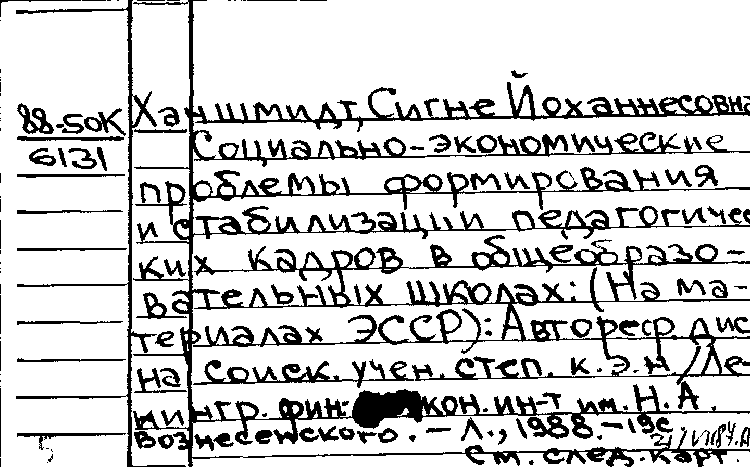 Ханшмидт, Сигне Йоханнесовна
88-50К
6131
Социально-экономические
проблемы формирования
и стабилизации педагогичес
ких кадров в общеобразо-
вательных школах: (На ма-
териалах ЭССР): Автореф. дис
на соиск. учен. степ. к.э.н / Ле-
нингр. фин.- кон. ин-т им. Н.А.
Вознесенского. - Л., 1988. - 19с.
См. след. карт.
5